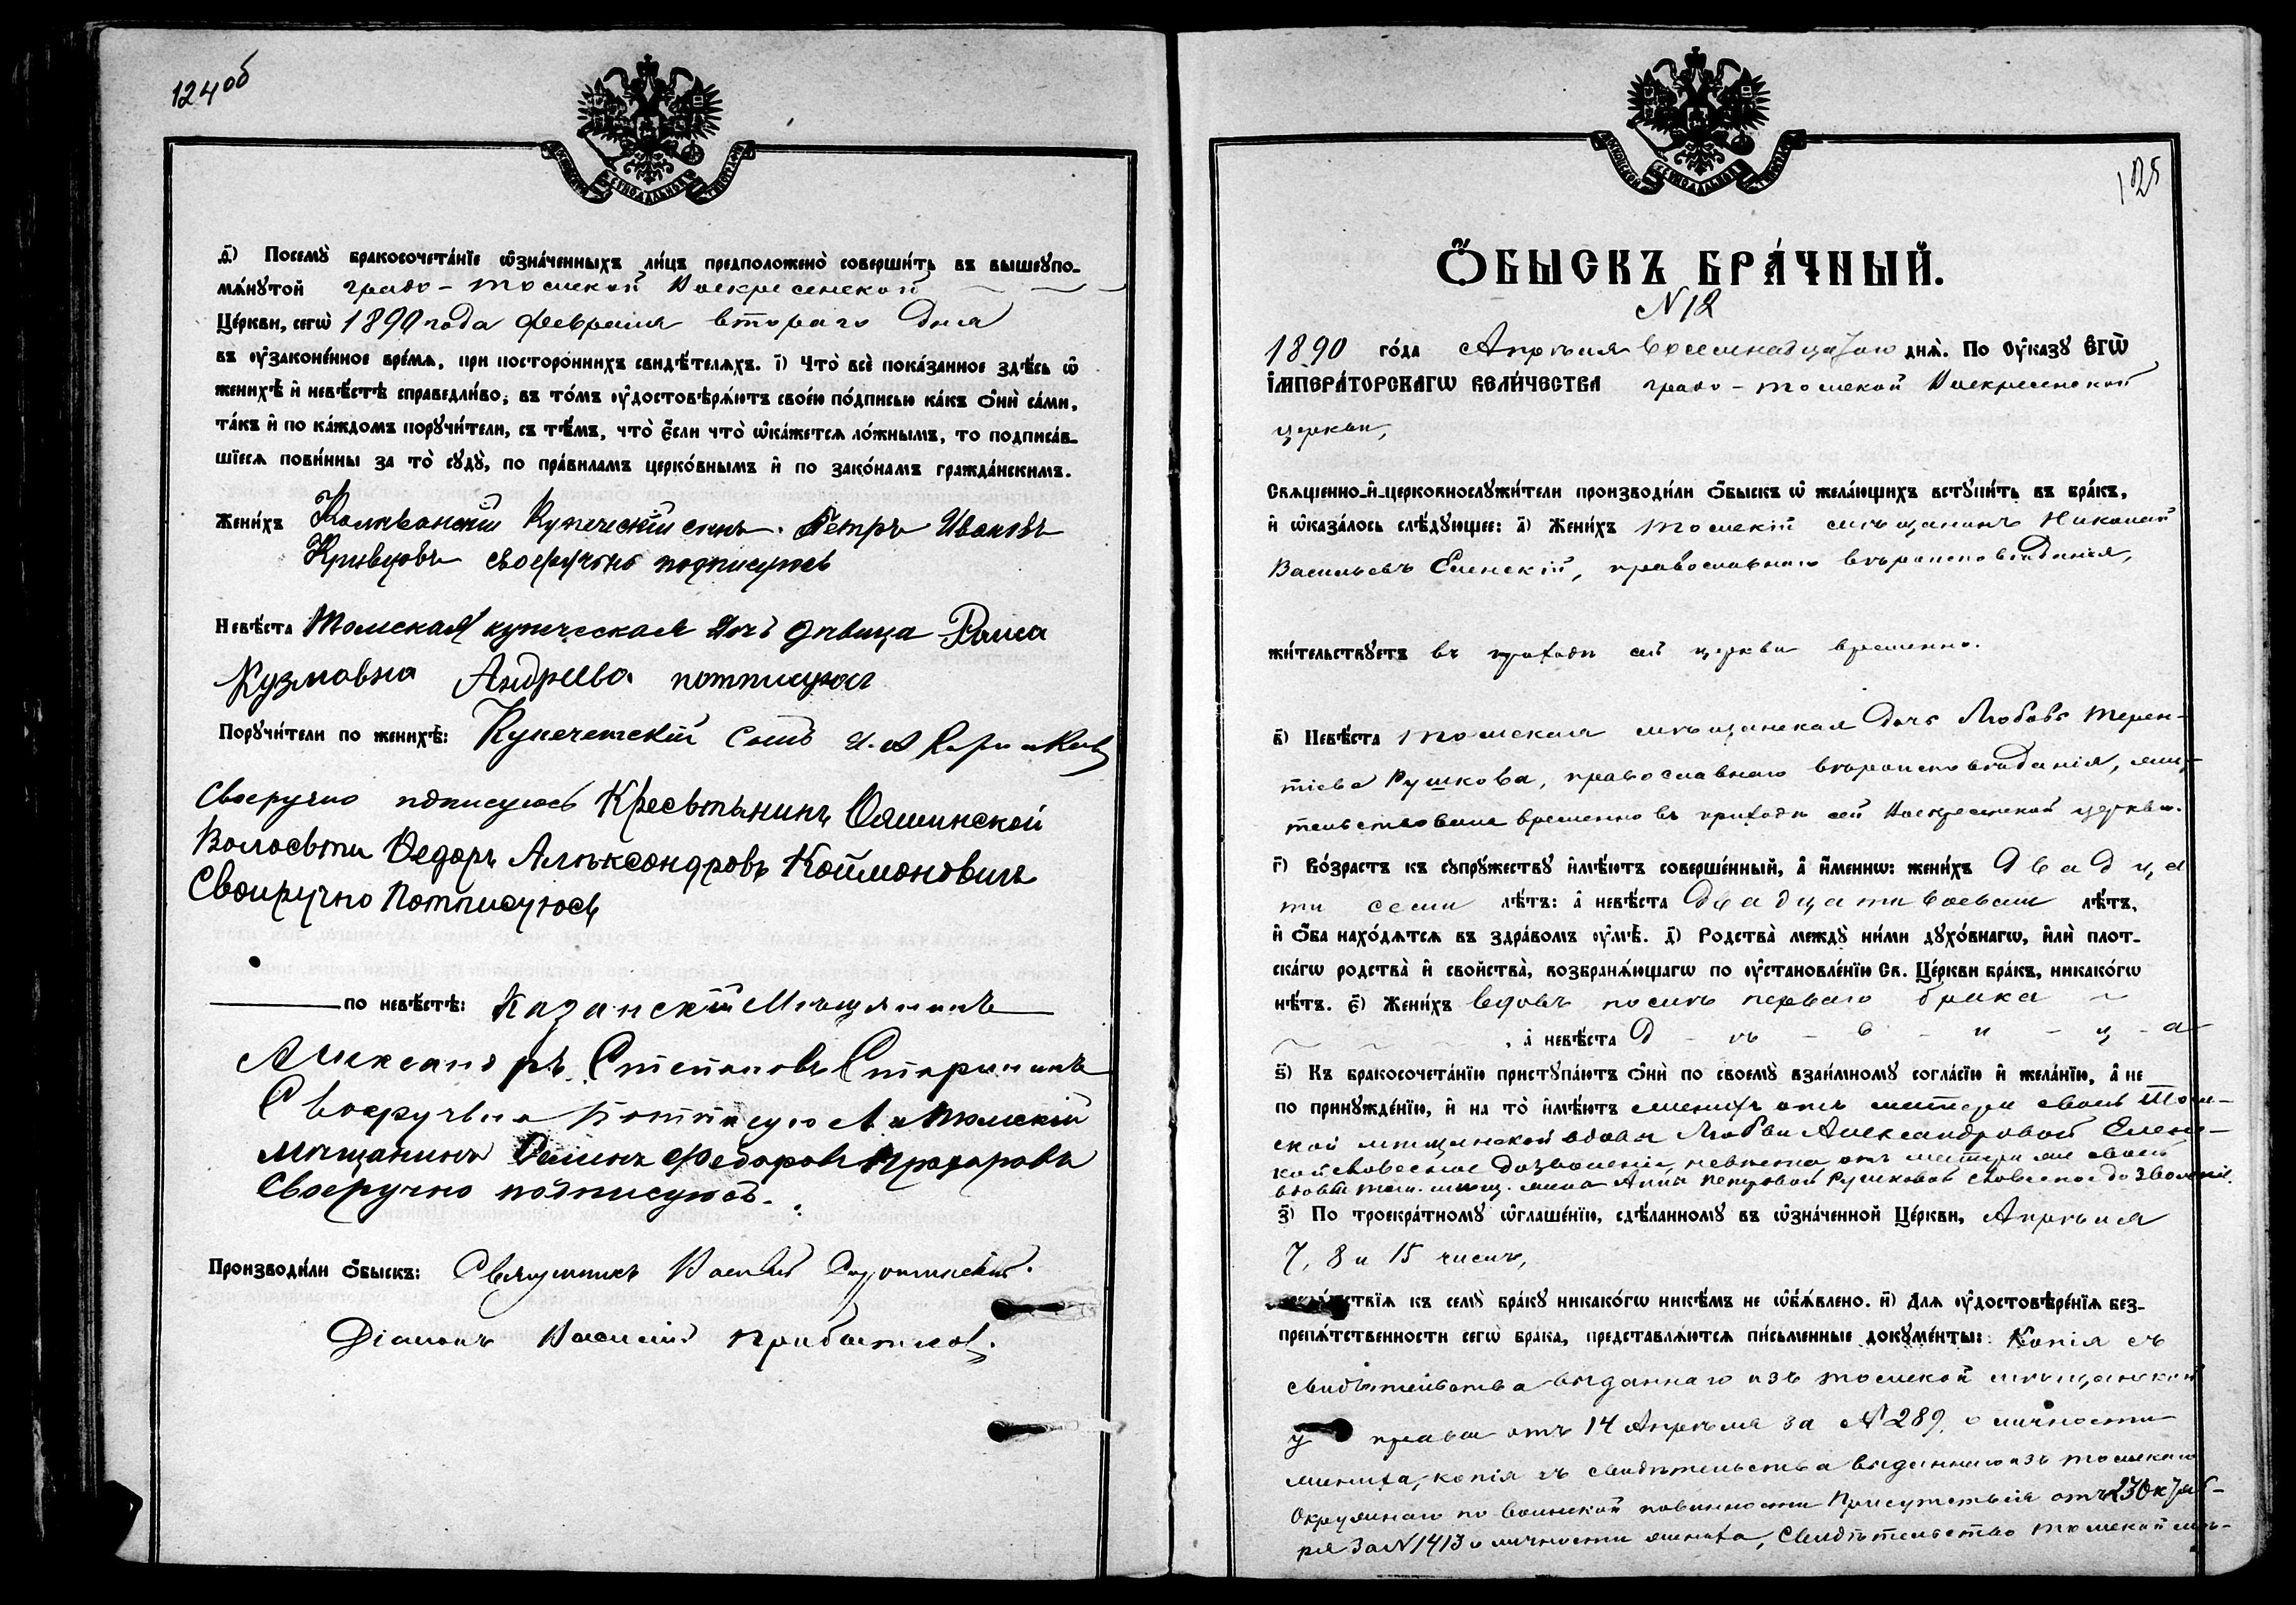 124об
д҃) Посемꙋ̀ бракосочета́нїе ѡ҆зна́ченныхъ ли́цъ предположено̀ соверши́ть въ вышеꙋпо-
мѧ́нꙋтой градо-Томской Воскресенской
Це́ркви, сегѡ̀ 1890 года Февраля втораго дня
въ оу҆законе́нное вре́мѧ, при посторо́ннихъ свидѣ́телѧхъ. і҃) Что̀ всѐ пока́занное здѣ́сь ѡ҆
женихѣ̀ и҆ невѣ́стѣ справедли́во, въ то́мъ оу҆достовѣрѧ́ютъ свое́ю по́дписью ка́къ о҆нѝ са́ми,
та́къ и҆ по ка́ждомъ порꙋчи́тели, съ тѣ́мъ, что̀ є҆́сли что̀ ѡ҆ка́жетсѧ ло́жнымъ, то подписа́в-
шїесѧ пови́нны за то̀ сꙋдꙋ̀, по пра́виламъ церко́внымъ и҆ по зако́намъ гражда́нскимъ.
Жени́хъ Колыванскій Купеческій сынъ. Петръ Ивановъ
Кривцовъ своеручно подписуюсь
Невѣ́ста Томская купеческая дочь дѣвица Раиса
Кузмовна Андреева потписуюсь
Порꙋчи́тели по женихѣ̀: Купечетский сынъ
Своеручно подписуюсь Кресьтьнинъ Ояшинской
Волосьти Ѳедоръ Алѣксондровъ Коймоновичь
Своиручно Потписуюсь
по невѣ́стѣ: Казанскій Мѣщянинъ
Александръ Степановъ Старининъ
Своеручьно Подписуюсь Томский
мѣщанинъ Семенъ Федоровъ Прохоровъ
Своеручно подписуюсъ.
Производи́ли о҆́быскъ: Священникъ Василій
Діаконъ Василій
125
О҆́БЫСКЪ БРА́ЧНЫЙ.
N 12
1890 го́да Апрѣля восемнадцатого днѧ̀. По Оу҆ка́зꙋ Є҆ГѠ̀
І҆МПЕРА́ТОРСКАГѠ ВЕЛИ́ЧЕСТВА градо-Томской Воскресенской
церкви,
Свѧще́нно-и҆-церковнослꙋжи́тели производи́ли о҆́быскъ ѡ҆ жела́ющихъ встꙋпи́ть въ бра́къ,
и҆ ѡ҆каза́лось слѣ́дꙋющее: а҃) Жени́хъ Томскій мѣщанинъ Николай
Васильевъ Еленскій, православнаго вѣроисповѣданія,
жи́тельствꙋетъ въ приходѣ сей церкви временно.
в҃) Невѣ́ста Томская мѣщанская дочь Любовь Терен-
тіева Рушкова, православнаго вѣроисповѣданія, жи-
тельствовала временно въ приходѣ сей Воскресенской церкви.
г҃) Во́зрастъ къ сꙋпрꙋ́жествꙋ и҆мѣ́ютъ соверше́нный, а҆ и҆́меннѡ: жени́хъ Двадца
ти семи лѣ́тъ: а҆ невѣ́ста Двадцати восьми лѣ́тъ,
и҆ о҆́ба нахо́дѧтсѧ въ здра́вомъ оу҆мѣ̀. д҃) Родства̀ междꙋ̀ ни́ми дꙋхо́внагѡ, и҆лѝ плот-
ска́гѡ родства̀ и҆ свойства̀, возбранѧ́ющагѡ по оу҆становле́нїю Св. Це́ркви бра́къ, никако́гѡ
нѣ́тъ. є҃) Жени́хъ вдовъ послѣ перваго брака
, а҆ невѣ́ста д - ѣ - в - и - ц - а
ѕ҃) Къ бракосочета́нїю пристꙋпа́ютъ о҆нѝ по своемꙋ̀ взаи́мномꙋ согла́сїю и҆ жела́нїю, а҆ не
по принꙋжде́нїю, и҆ на то̀ и҆мѣ́ютъ женихъ отъ матери своей Том-
ской мѣщанской вдовы Любви Александровой Елен-
кой словесное дозволеніе, невѣста отъ матери же своей
вдовы том. мѣщ. жены Анны Петровой Рушковой словесное дозволеніе.
з҃) По троекра́тномꙋ ѡ҆глаше́нїю, сдѣ́ланномꙋ въ ѡ҆зна́ченной Це́ркви, Апрѣля
7, 8 и 15 чиселъ,
препѧ́тствїѧ къ семꙋ̀ бра́кꙋ никако́гѡ никѣ́мъ не ѡ҆б̾ѧ́влено. и҃) Длѧ оу҆достовѣре́нїѧ без-
препѧ́тственности сегѡ̀ бра́ка, представлѧ́ютсѧ пи́сьменные докꙋме́нты: Копія съ
свидѣтельства выданнаго изъ томской мѣщанской
управы отъ 14 Апрѣля за № 289 о личности
жениха, копія съ свидѣтельства выданнаго изъ томскаго
Окружнаго по воинской повинности Присутствія отъ 23 Октяб-
ря за N 1413 о личности жениха, Свидѣтельство томской мѣ-